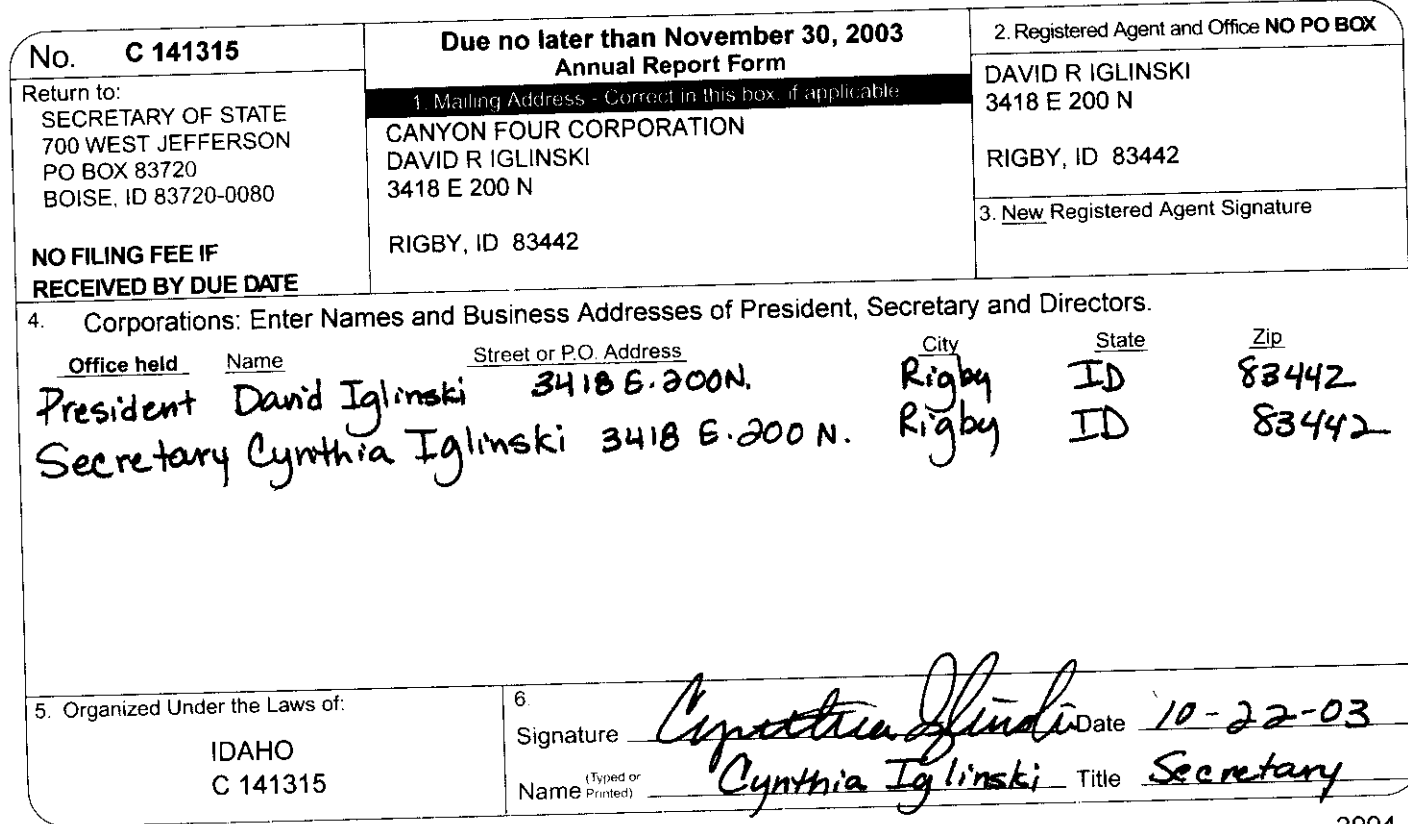 No. C 141315
Return to:
SECRETARY OF STATE
700 WEST JEFFERSON
PO BOX 83720
BOISE, ID 83720-0080
NO FILING FEE IF
RECEIVED BY DUE DATE
Due no later than November 30, 2003
Annual Report Form
1. Mailing Address - Correct in this box, if applicable
CANYON FOUR CORPORATION
DAVID R IGLINSKI
3418 E 200 N
RIGBY, ID 83442
2. Registered Agent and Office NO PO BOX
DAVID R IGLINSKI
3418 E 200 N
RIGBY, ID 83442
3. New Registered Agent Signature
4. Corporations: Enter Names and Business Addresses of President, Secretary and Directors.
Office held Name Street or P.O. Address City State Zip
President David Iglinski 3418 E. 200 N. Rigby ID 83442
Secretary Cynthia Iglinski 3418 E. 200 N. Rigby ID 83442
5. Organized Under the Laws of:
IDAHO
C 141315
6.
Signature Cynthia Iglinski Date 10-22-03
Name (Typed or Printed) Cynthia Iglinski Title Secretary